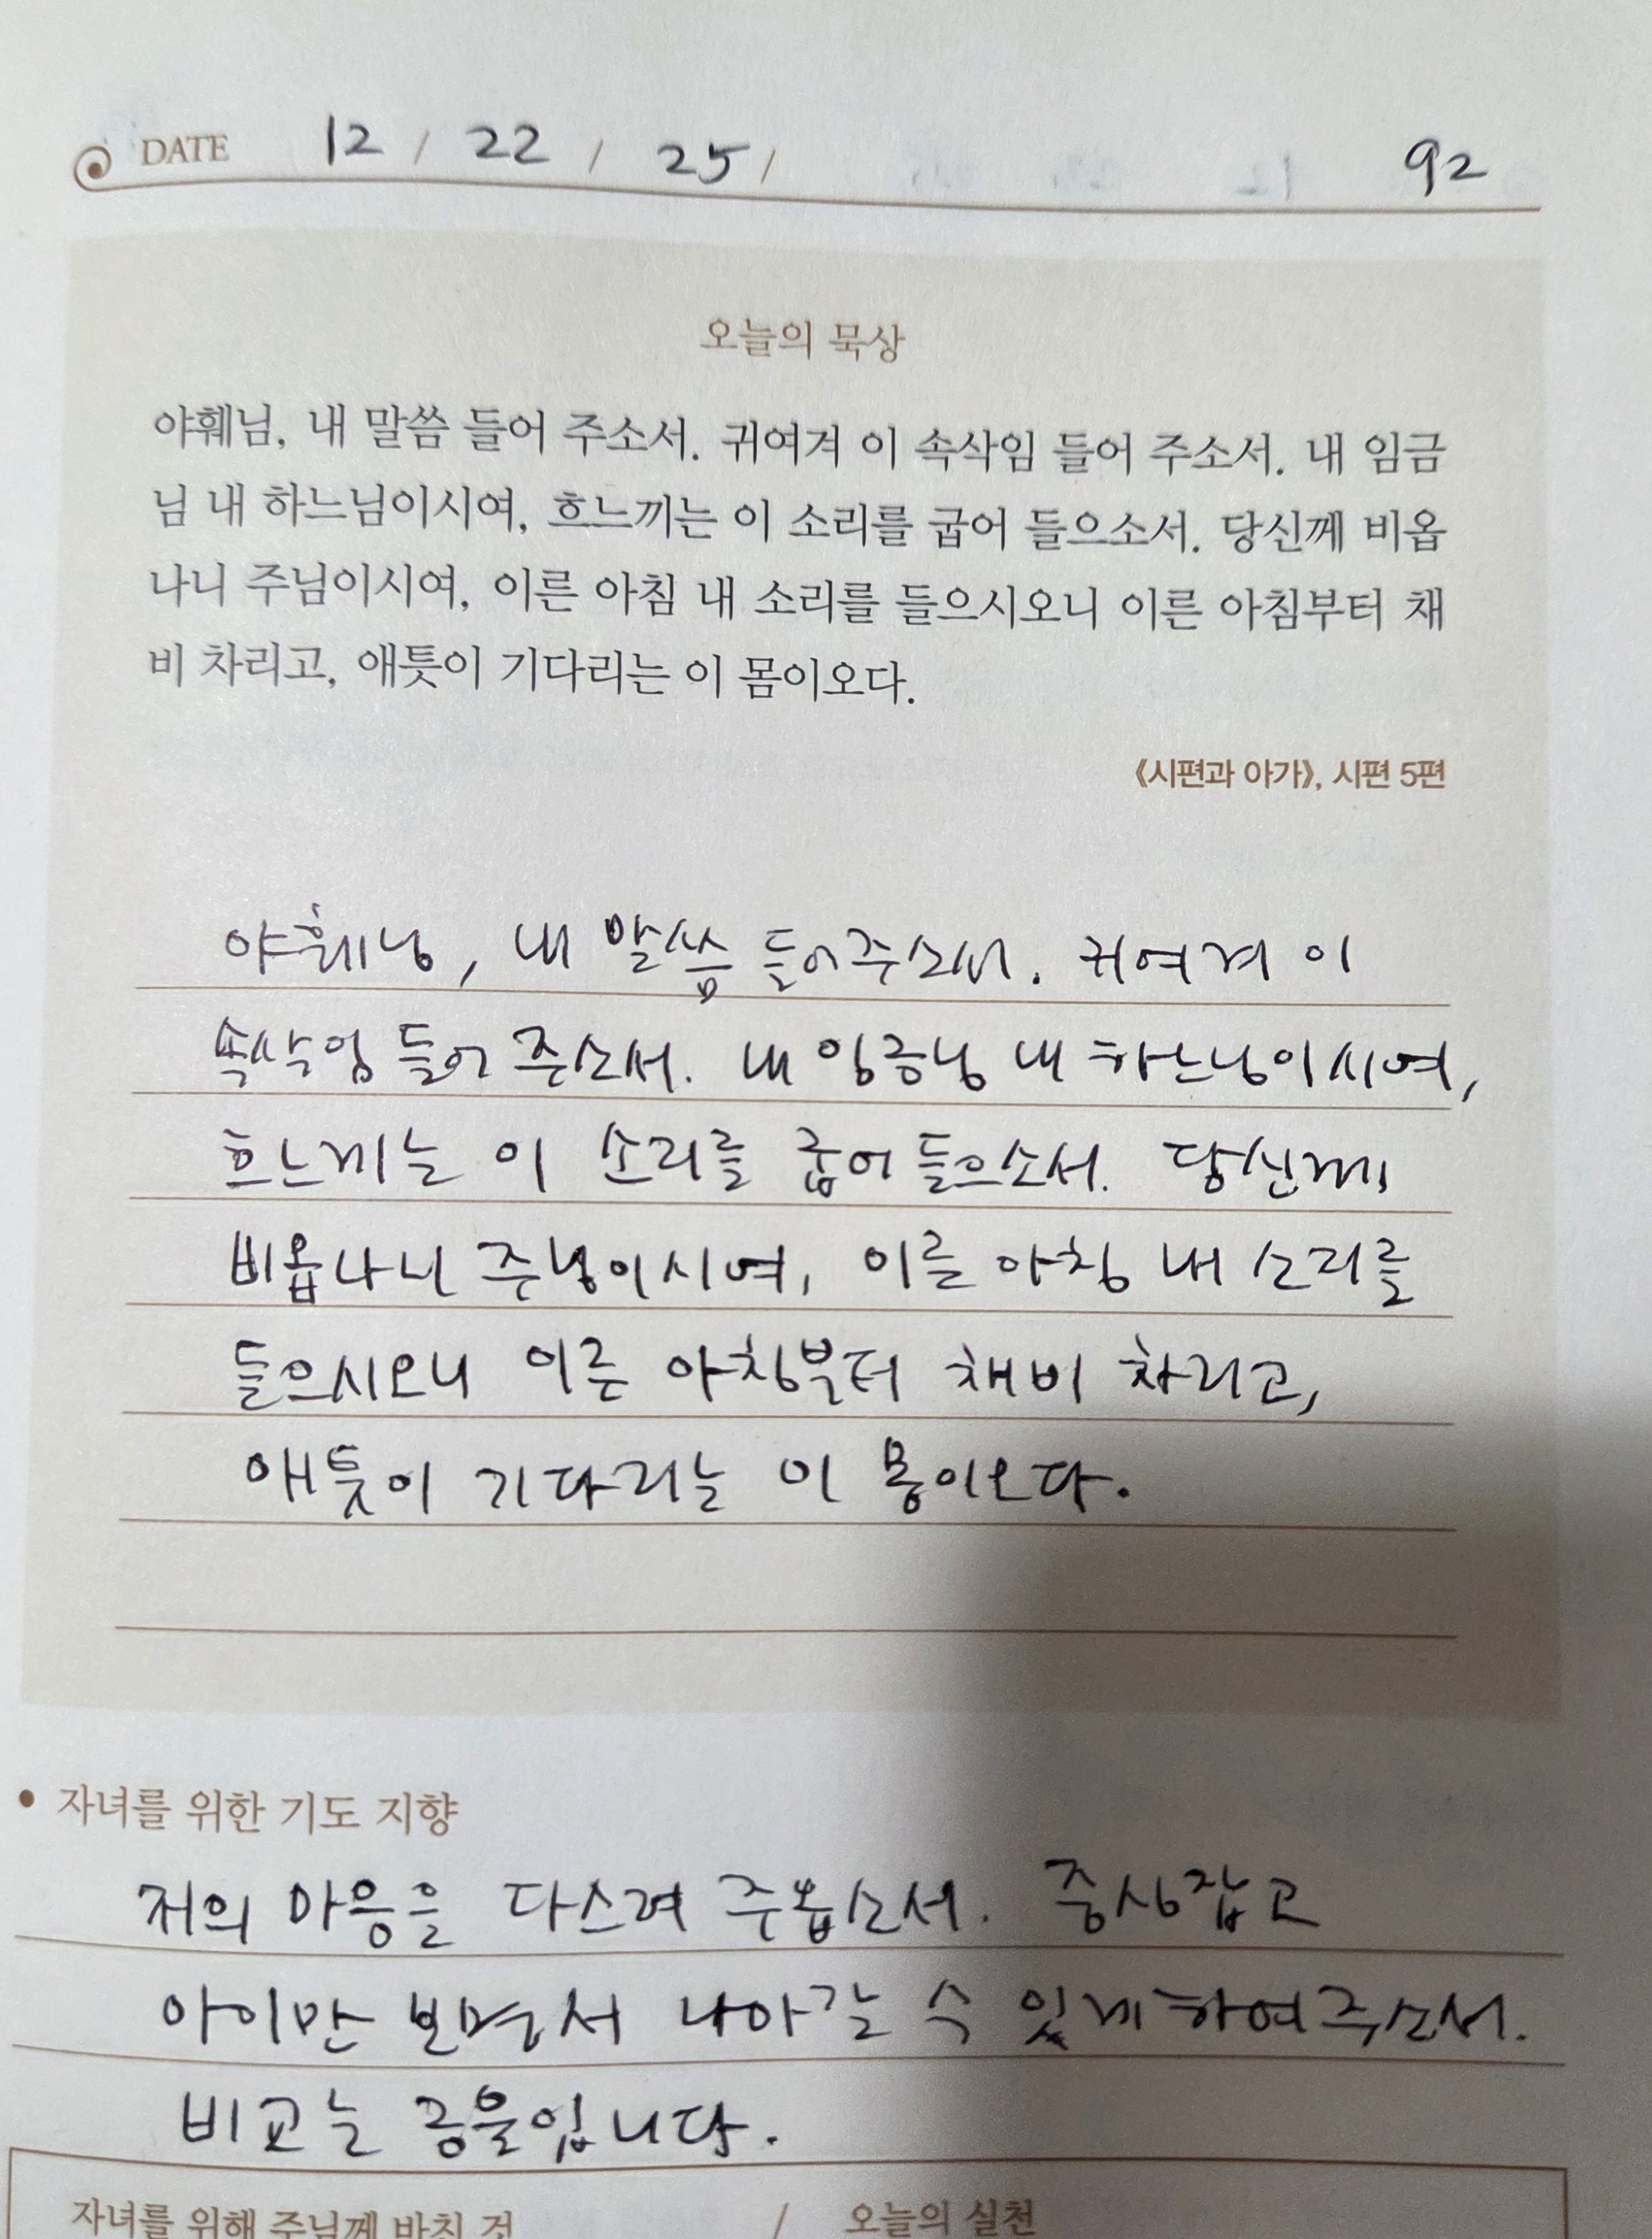 DATE 12 / 22 / 25 / 92
오늘의 묵상
야훼님, 내 말씀 들어 주소서. 귀여겨 이 속삭임 들어 주소서. 내 임금
님 내 하느님이시여, 흐느끼는 이 소리를 굽어 들으소서. 당신께 비옵
나니 주님이시여, 이른 아침 내 소리를 들으시오니 이른 아침부터 채
비 차리고, 애틋이 기다리는 이 몸이오다.
《시편과 아가》, 시편 5편
야훼님, 내 말씀 들어주소서. 귀여겨 이
속삭임 들어 주소서. 내 임금님 내 하느님이시여,
흐느끼는 이 소리를 굽어 들으소서. 당신께
비옵나니 주님이시여, 이른 아침 내 소리를
들으시오니 이른 아침부터 채비 차리고,
애틋이 기다리는 이 몸이오다.
• 자녀를 위한 기도 지향
저의 마음을 다스려 주옵소서. 중심잡고
아이만 보면서 나아갈 수 있게 하여주소서.
비교는 금물입니다.
자녀를 위해 주님께 바친 것 / 오늘의 실천